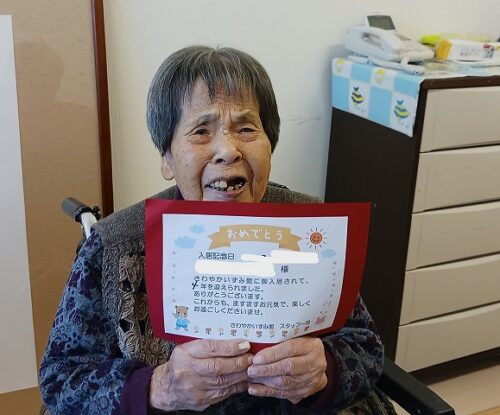 おめでとう
入居記念日
様
さわやかいずみ館に御入居されて、
年を迎えられました。
ありがとうございます。
これからも、ますますお元気で、楽しく
お過ごしくださいませ。
さわやかいずみ館 スタッフ一同